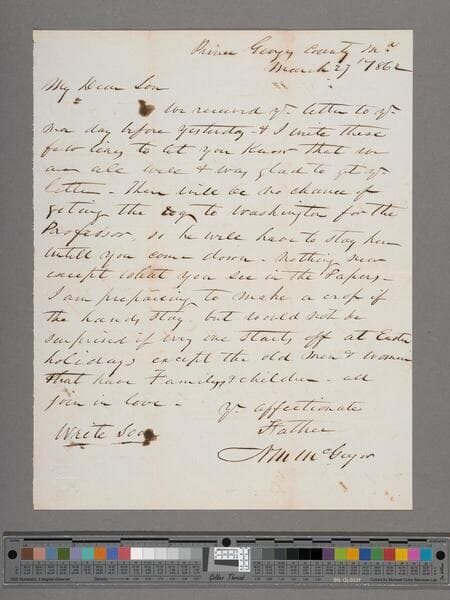 Prince Georges County Md
March 27th 1862
My Dear Son
We received yr letter to yr
ma day before yesterday - & I write these
few lines to let you know that we
are all well & was glad to get yr
letter - There will be no chance of
geting the to Washington for the
Professor, so he will have to stay her
untill you come down - nothing new
except what you see in the Papers -
I am prepairing to make a crop if
the hands stay, but would not be
surprised if evry one starts off at Easter
holidays except the old men & women
that have Familys & children - all
join in love - yr affectionate
Father
Write Soon
A M McGregor
Golden Thread